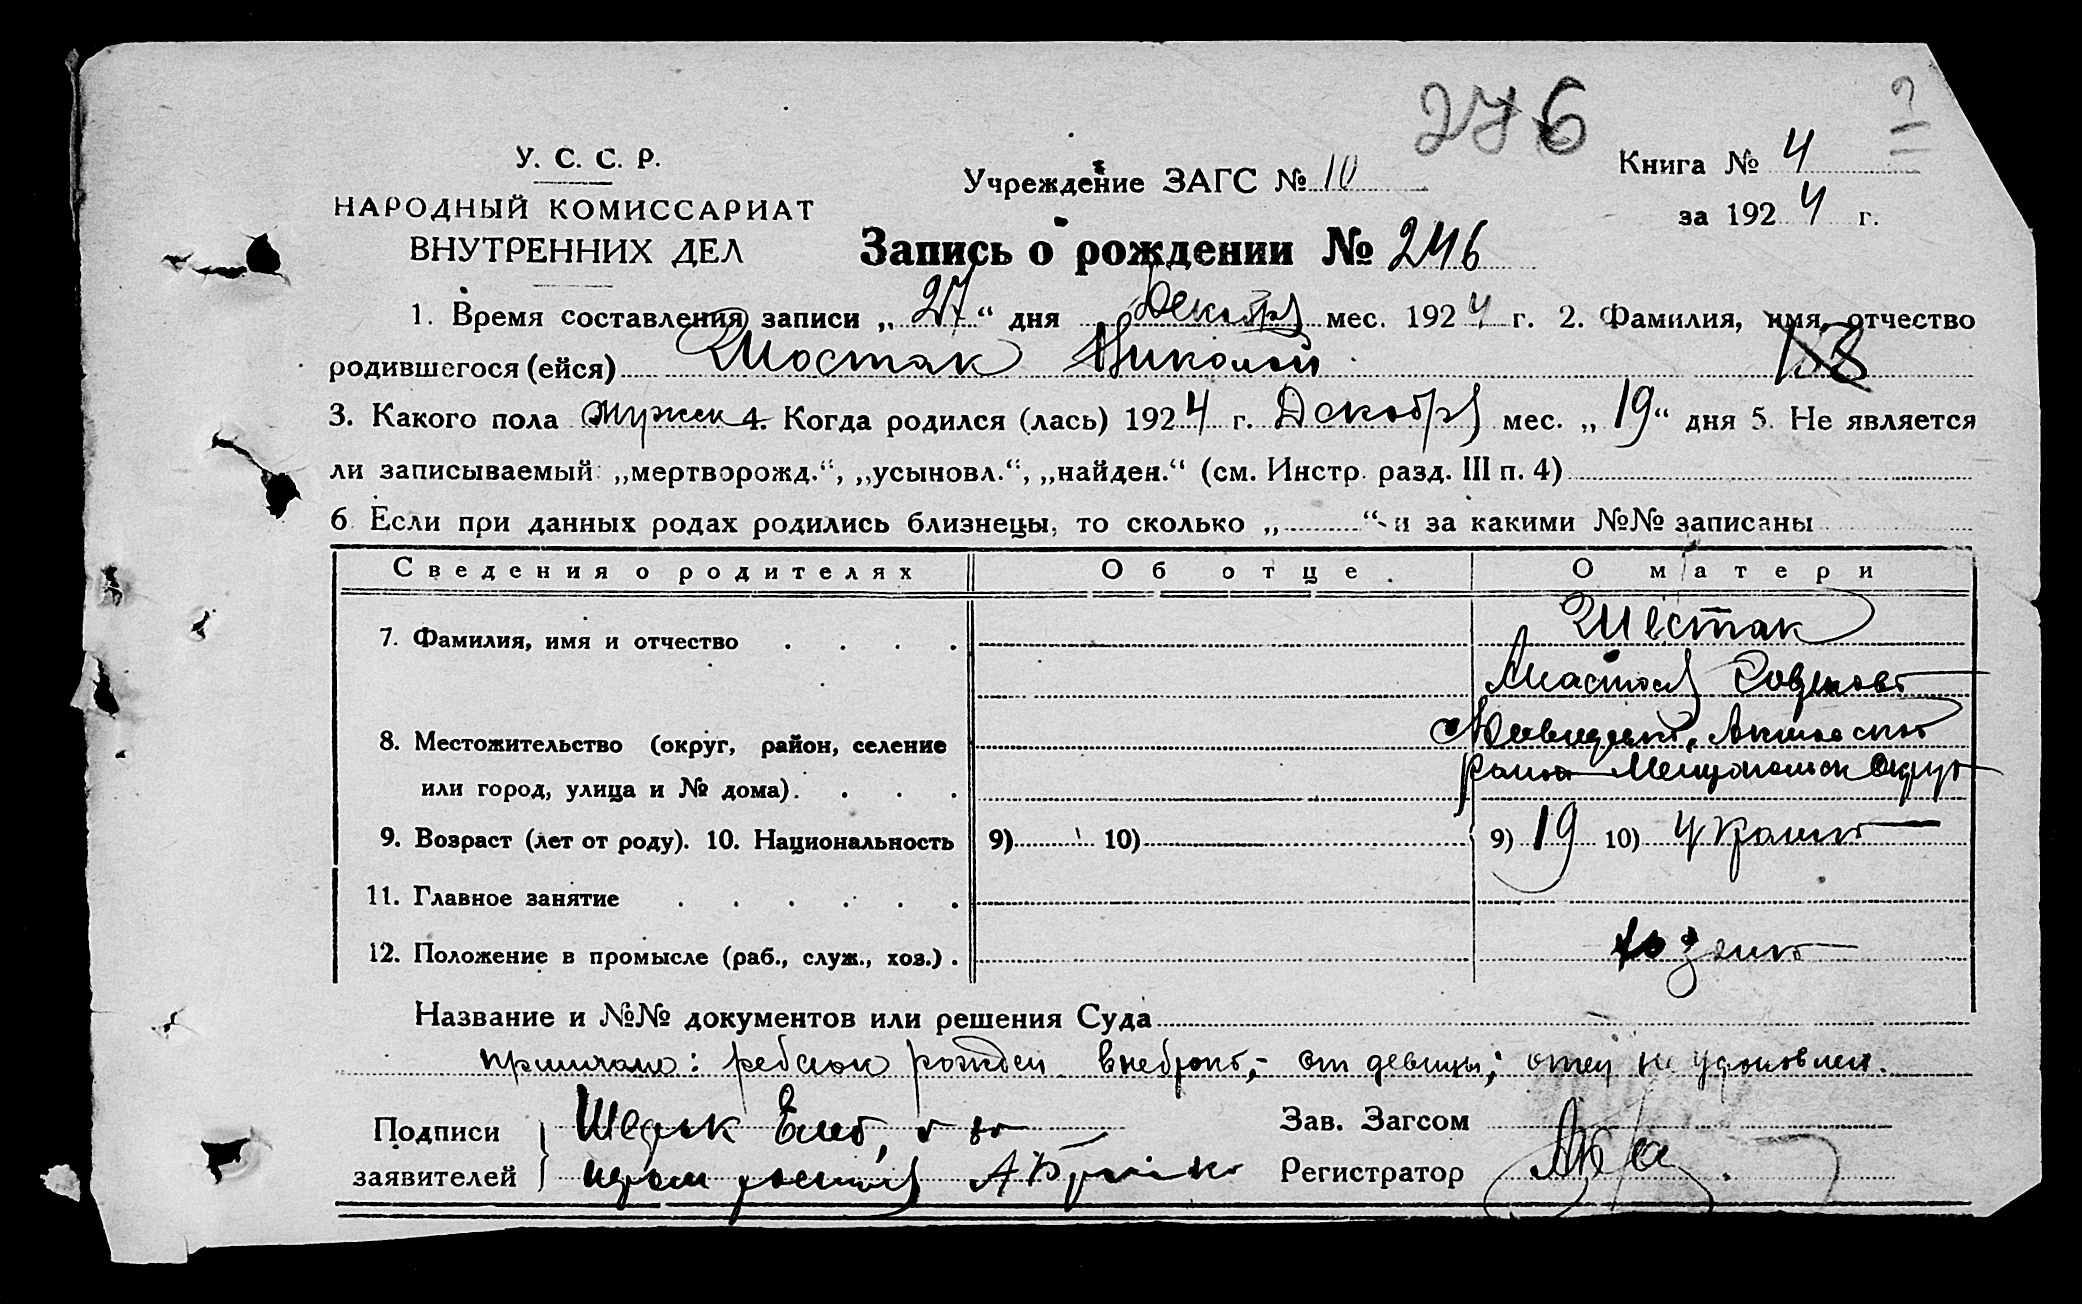 276
У. С. С. Р.
НАРОДНЫЙ КОМИССАРИАТ
ВНУТРЕННИХ ДЕЛ
Учреждение ЗАГС № 10
Книга № 4
за 1924 г.
Запись о рождении № 246
1. Время составления записи „27“ дня Декабря мес. 1924 г. 2. Фамилия, имя, отчество
родившегося (ейся) Шостак Николай
3. Какого пола мужск 4. Когда родился (лась) 1924 г. Декабря мес. „19“ дня 5. Не является
ли записываемый: „мертворожд.“, „усыновл.“, „найден.“ (см. Инстр. разд. III п. 4)
6 Если при данных родах родились близнецы, то сколько „ “ и за какими №№ записаны
Сведения о родителях Об отце. О матери
7. Фамилия, имя и отчество Шестак
8. Местожительство (округ, район, селение
или город, улица и № дома). район Мелитопольск округ
9. Возраст (лет от роду). 10. Национальность 9) 10) 9) 19 10)
11. Главное занятие
12. Положение в промысле (раб., служ., хоз.).
Название и №№ документов или решения Суда
ребенок рожден от девицы; отец не установлен.
Подписи Зав. Загсом
заявителей Регистратор